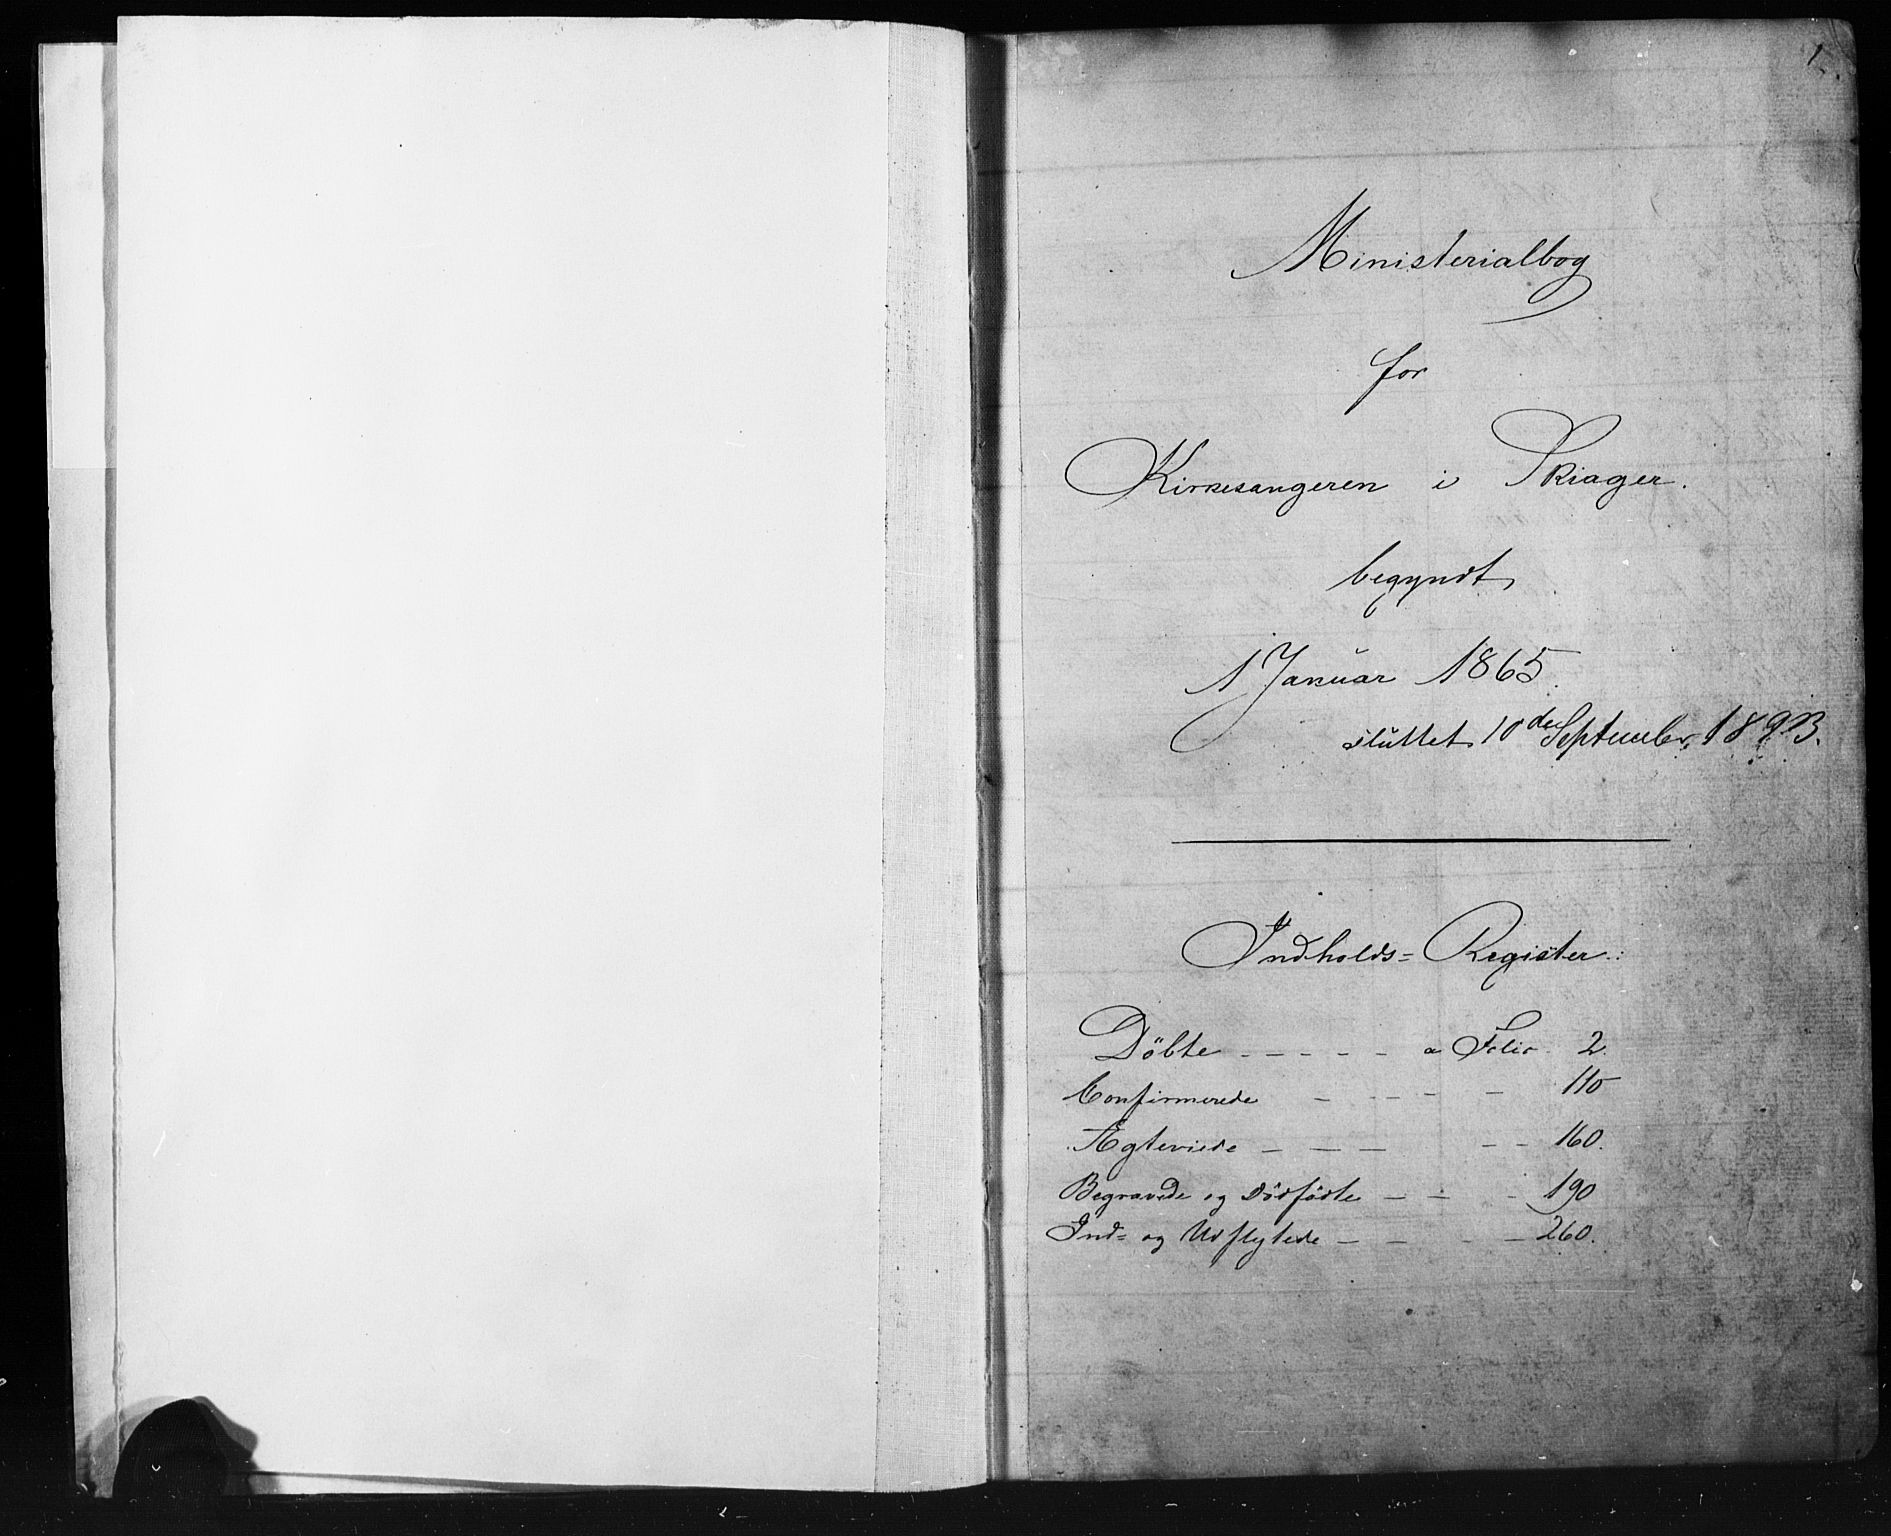 1.
Ministerialbog
for
Kirkesangeren i Skiager.
begyndt
1 Januar 1865.
sluttet 10de September 1893.
Indholds= Register:
Döbte - - - - - a Folio 2.
Confirmerede - - - - - 110
Ægteviede - - - - - - 160.
Begravede og Dödfödte - - - 190
Ind= og Udflytede - - - - 260.